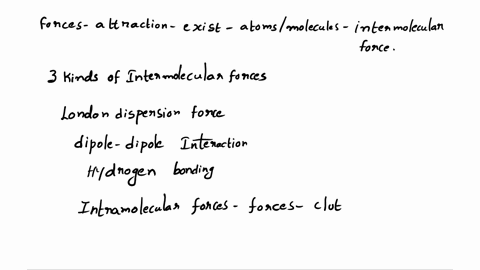 forces- attraction- exist- atoms/molecules- intermolecular
force.
3 kinds of Intermolecular forces
London dispersion force
dipole-dipole Interaction
Hydrogen bonding
Intramolecular forces- forces- clut